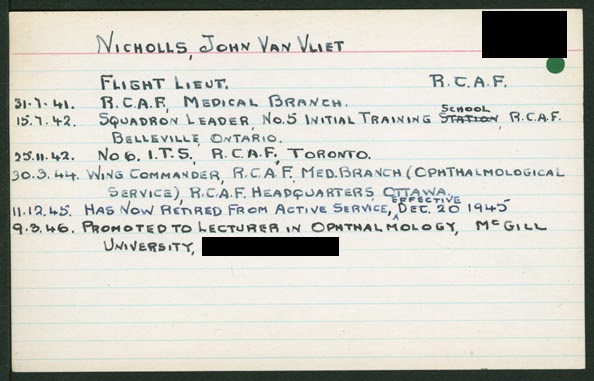 NICHOLLS, JOHN VAN VLIET
FLIGHT LIEUT. R.C.A.F.
31.7.41. R.C.A.F., MEDICAL BRANCH.
15.7.42. SQUADRON LEADER, NO.5 INITIAL TRAINING STATION SCHOOL, R.C.A.F.
BELLEVILLE, ONTARIO.
25.11.42. NO 6. I.T.S., R.C.A.F., TORONTO.
30.3.44. WING COMMANDER, R.C.A.F. MED. BRANCH (OPHTHALMOLOGICAL
SERVICE), R.C.A.F. HEADQUARTERS, OTTAWA.
11.12.45. HAS NOW RETIRED FROM ACTIVE SERVICE, EFFECTIVE DEC. 20 1945
9.3.46. PROMOTED TO LECTURER IN OPHTHALMOLOGY, McGILL
UNIVERSITY,